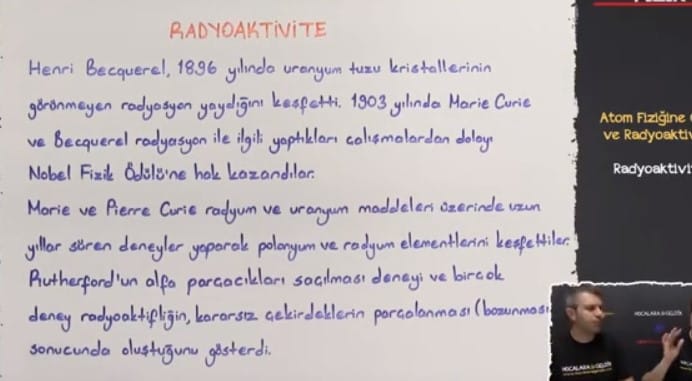 RADYOAKTİVİTE
Henri Becquerel, 1896 yılında uranyum tuzu kristallerinin
görünmeyen radyasyon yaydığını keşfetti. 1903 yılında Marie Curie
ve Becquerel radyasyon ile ilgili yaptıkları çalışmalardan dolayı
Nobel Fizik Ödülü'ne hak kazandılar.
Marie ve Pierre Curie radyum ve uranyum maddeleri üzerinde uzun
yıllar süren deneyler yaparak polonyum ve radyum elementlerini keşfettiler.
Rutherford'un alfa parçacıkları saçılması deneyi ve birçok
deney radyoaktifliğin, kararsız çekirdeklerin parçalanması (bozunması
sonucunda oluştuğunu gösterdi.
Atom Fiziğine
ve Radyoaktiv
Radyoaktivi
HOCALARA GELDİK
HOCALARA GELDİK